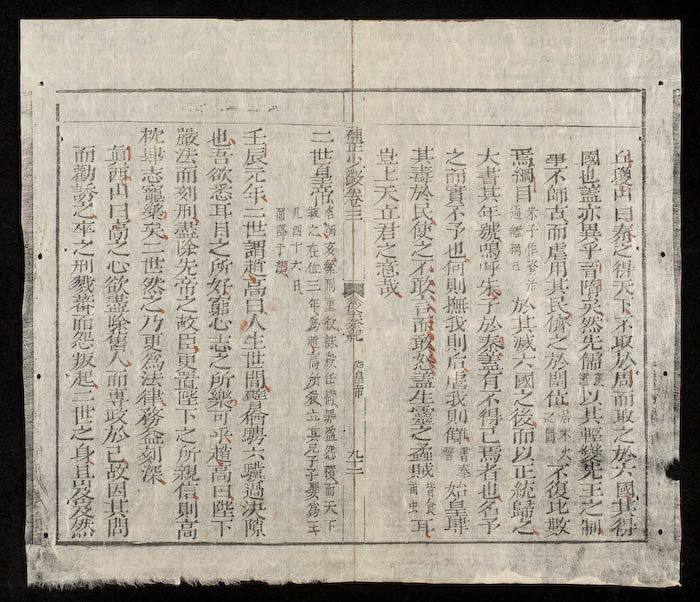 丘瓊山曰秦之得天下不取於周而取之於六國其得
國也蓋亦異乎晉隋矣然先儒以其輕變先王之制
事不師古而虐用其民儕之於閏位居木火之間不復比數
焉綱目朱子作資治通鑑綱目於其滅六國之後而以正統歸之
大書其年號嗚呼朱子於秦蓋有不得已焉者也名予
之而實不予也何則撫我則后虐我則讎書泰誓始皇肆
其毒於民使之不敢言而敢怒蓋生靈之蟊賊皆食苗虫耳
豈上天立君之意哉
少微卷三
後秦紀
始皇帝
九十二
二世皇帝名胡亥繁刑重役誅殺任情罪盈怨積而天下叛之在位三年為趙高所殺立其兄子子嬰為王凡四十六日而降于漢
壬辰元年二世謂趙高曰人生世間譬猶騁六驥過決隙
也吾欲悉耳目之所好窮心志之所樂可乎趙高曰陛下
嚴法而刻刑盡除先帝之故臣更置陛下之所親信則高
枕肆志寵樂矣二世然之乃更為法律務益刻深
真西山曰高之心欲盡除舊人而專政於己故因其問
而勸誘之卒之刑戮蕃而怨叛起二世之身且岌岌然